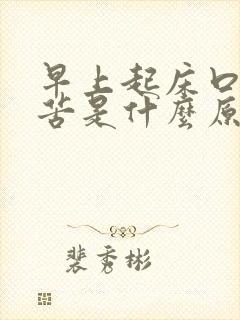 早上起床口
苦是什麼原
裴秀彬